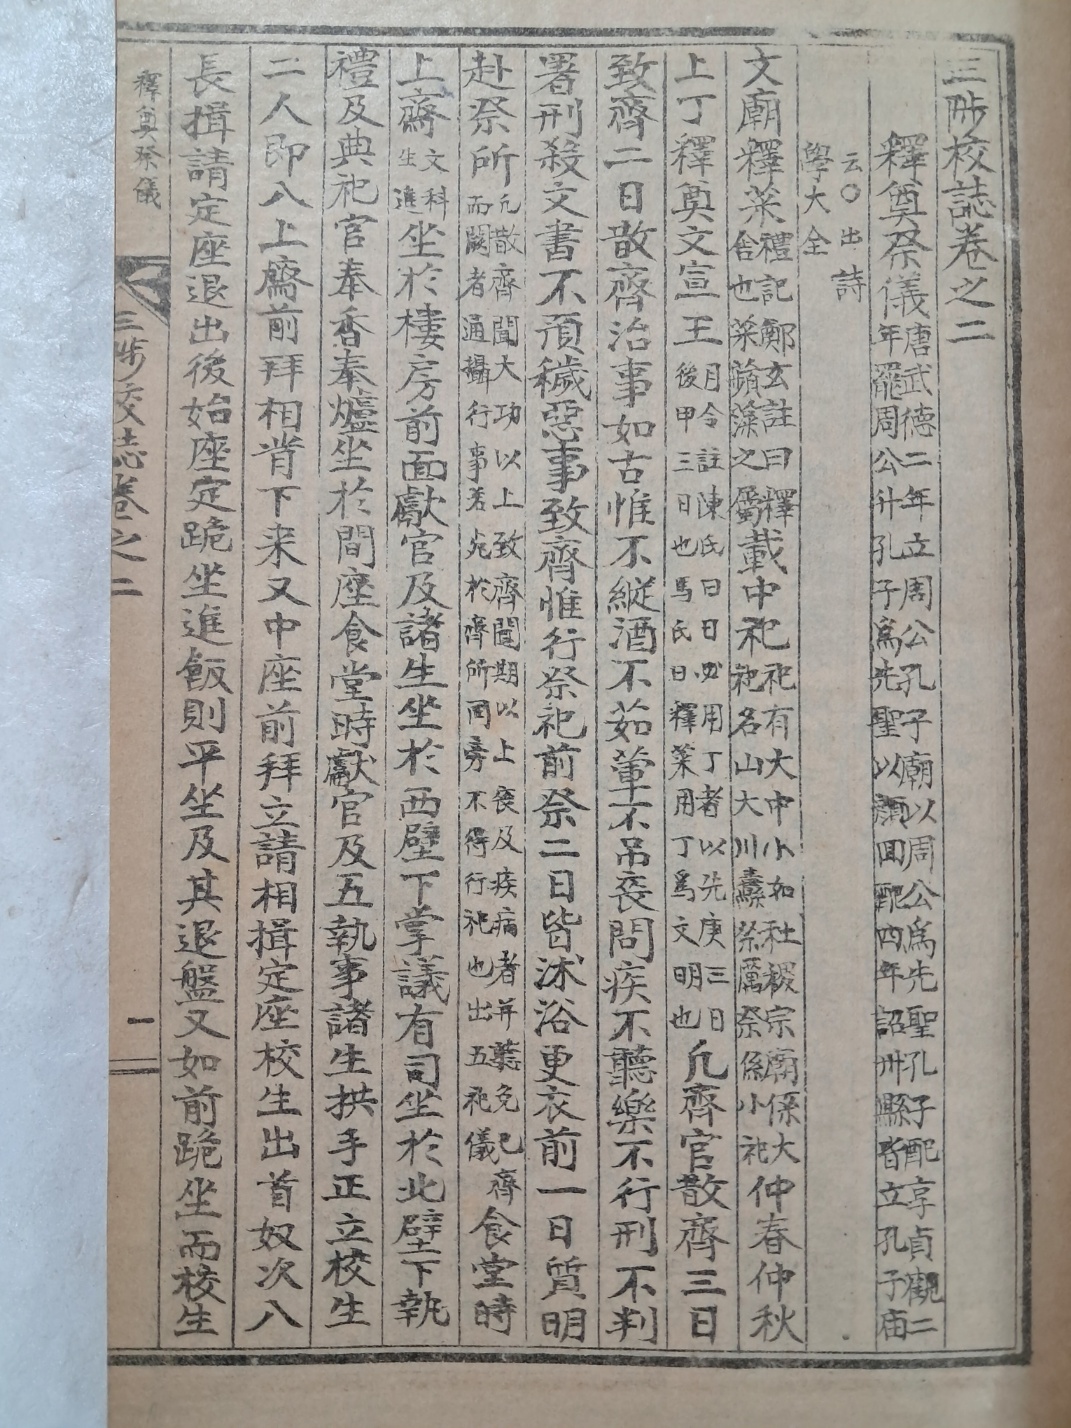 三陟校誌卷之二
釋奠祭儀唐武德二年立周公孔子廟以周公爲先聖孔子配享貞觀二
年罷周公升孔子爲先聖以顔回配四年詔州縣皆立孔子庙
云〇出詩
學大全
文廟釋菜禮記鄭玄註曰釋
舍也菜蘋藻之屬載中祀祀有大中小如社稷宗廟係大
祀名山大川纛祭厲祭係小祀仲春仲秋
上丁釋奠文宣王月令註陳氏曰日必用丁者以先庚三日
後甲三日也馬氏曰釋菜用丁爲文明也凡齊官散齊三日
致齊二日散齊治事如古惟不縱酒不茹葷不吊丧問疾不聽樂不行刑不判
署刑殺文書不預穢惡事致齊惟行祭祀前祭二日皆沐浴更衣前一日質明
赴祭所凡散齊聞大功以上致齊聞期以上丧及疾病者并聽免已
而闕者通攝行事若死於齊所同房不得行祀也出五祀儀齊食堂時
上齋文科
生進坐於樓房前面獻官及諸生坐於西壁下掌議有司坐於北壁下執
禮及典祀官奉香奉爐坐於間座食堂時獻官及五執事諸生拱手正立校生
二人即八上齋前拜相背下来又中座前拜立請相揖定座校生出首奴次八
長揖請定座退出後始座定跪坐進飯則平坐及其退盤又如前跪坐而校生
釋奠祭儀
三陟校誌卷之二
一